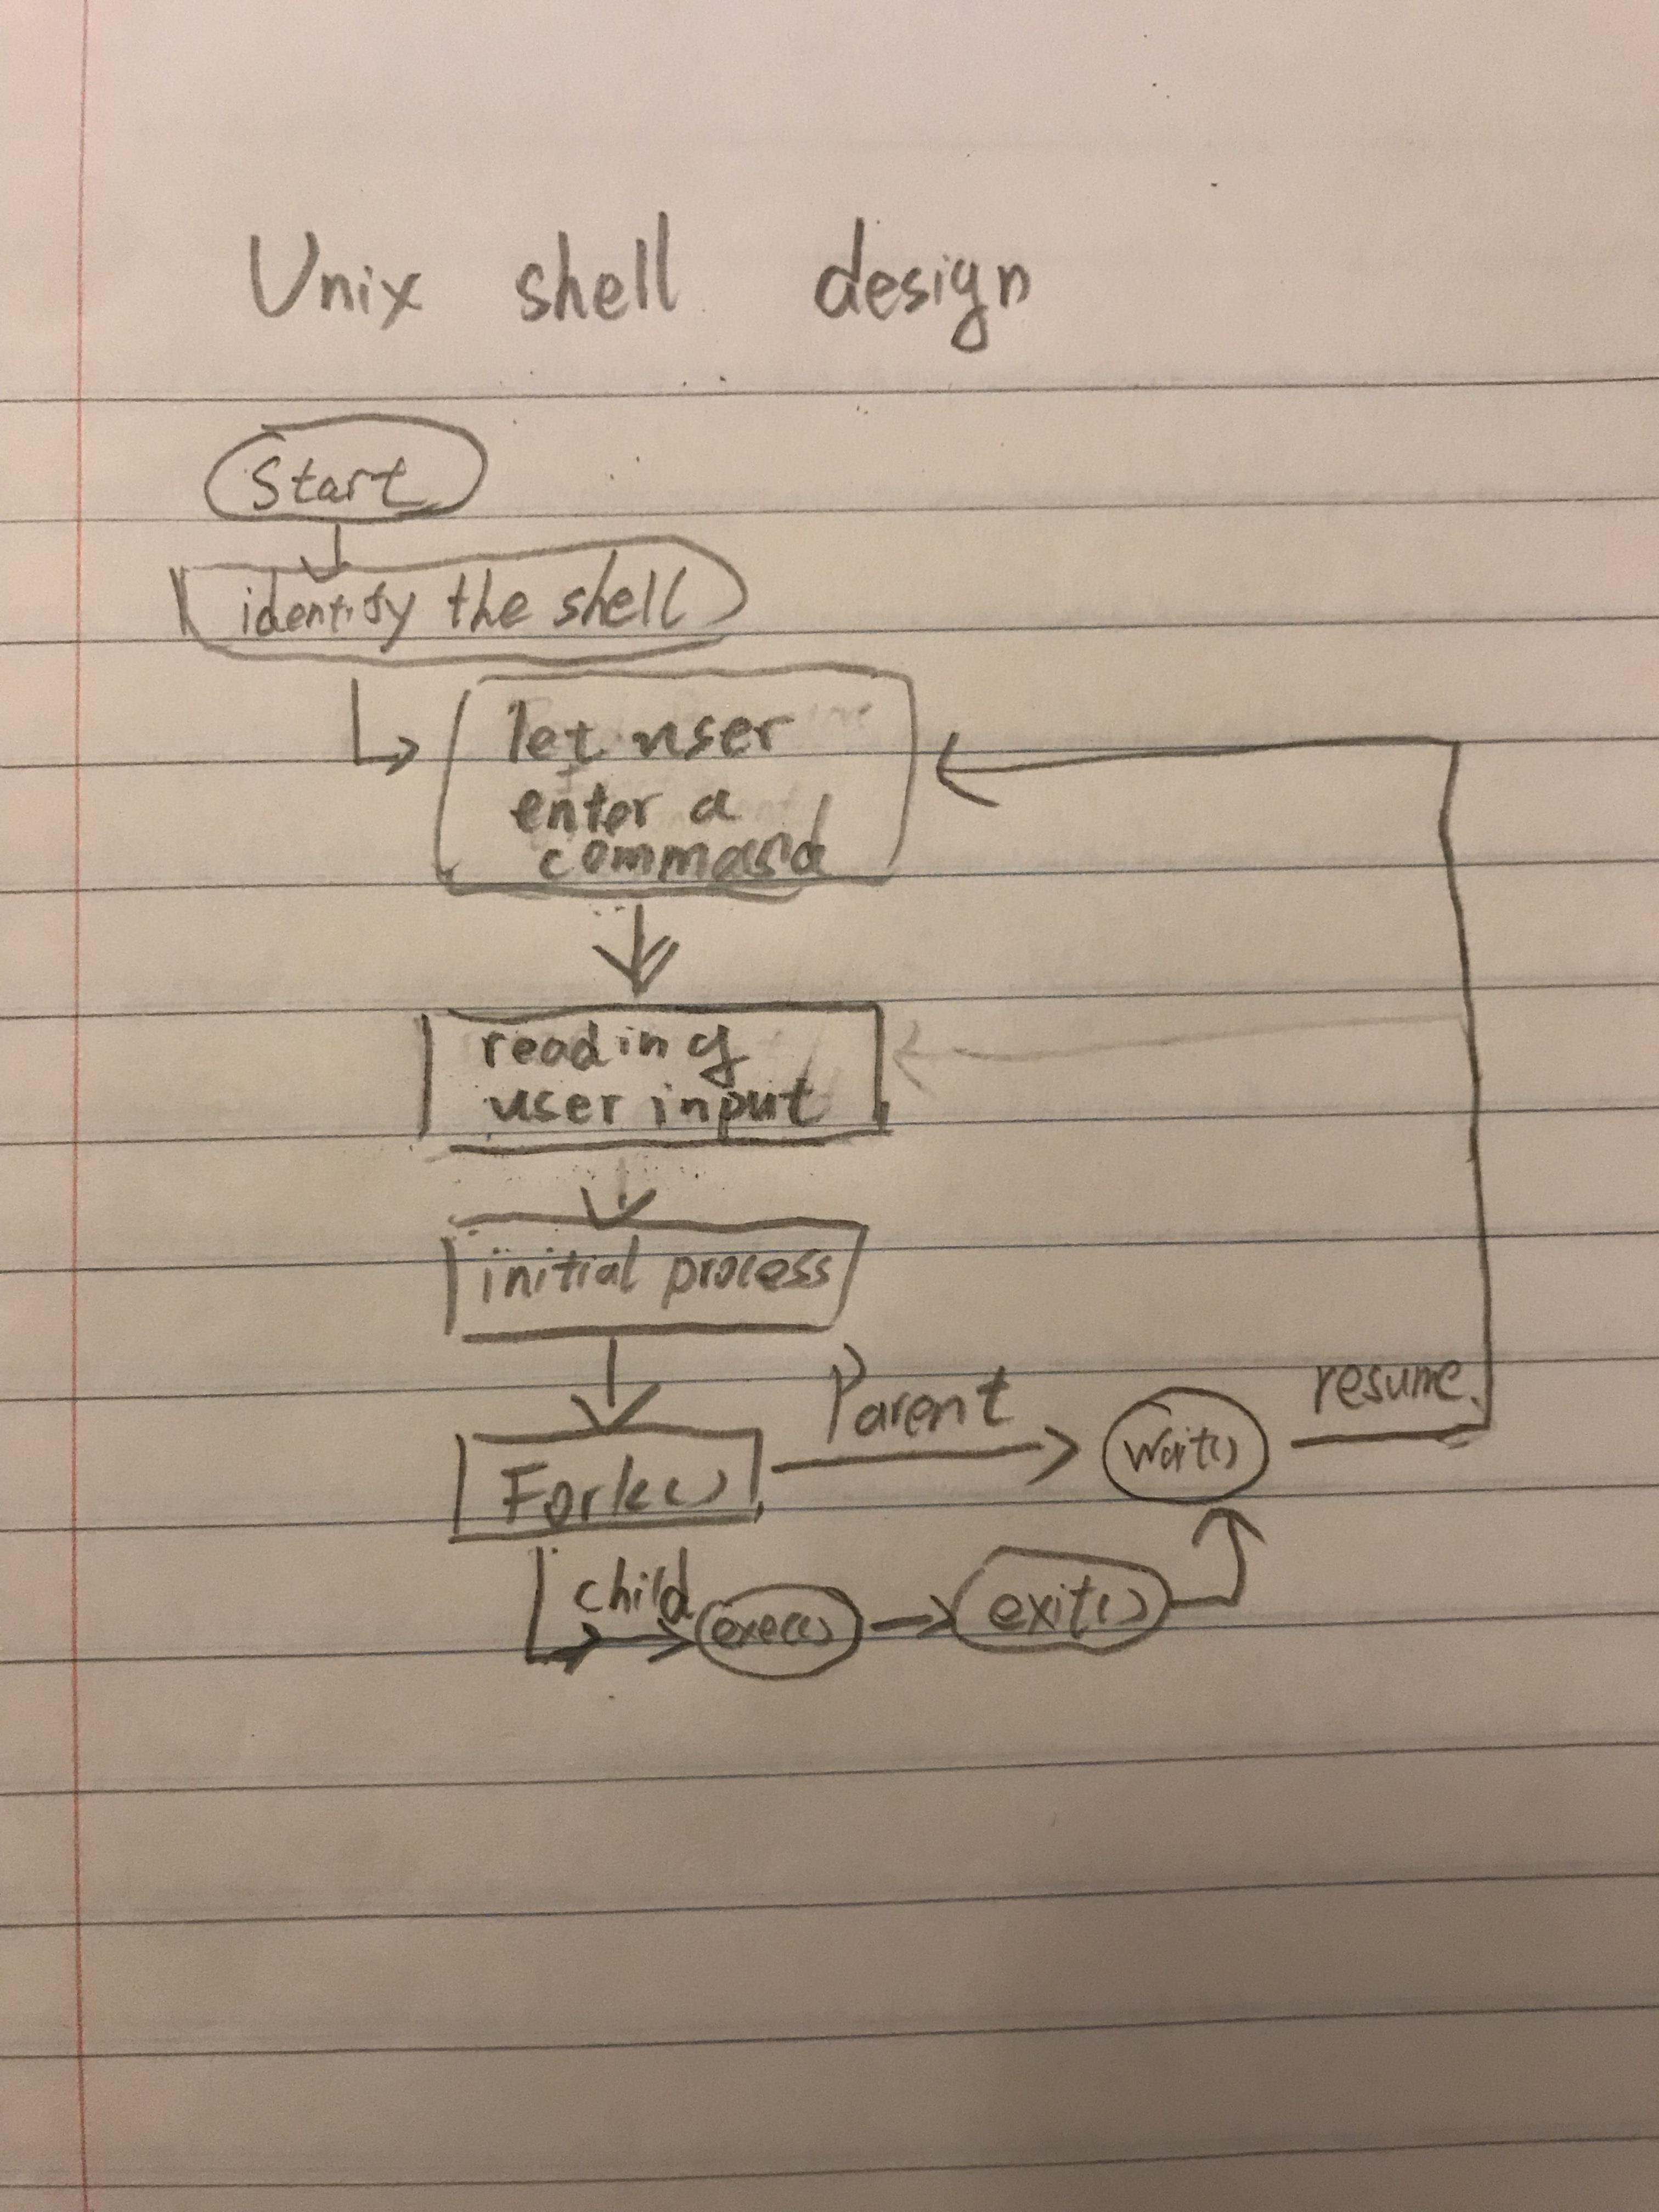 Unix shell design
Start
identify the shell
let user
enter a
command
reading
user input
initial process
Fork()
Parent
wait()
resume
child
exec()
exit()